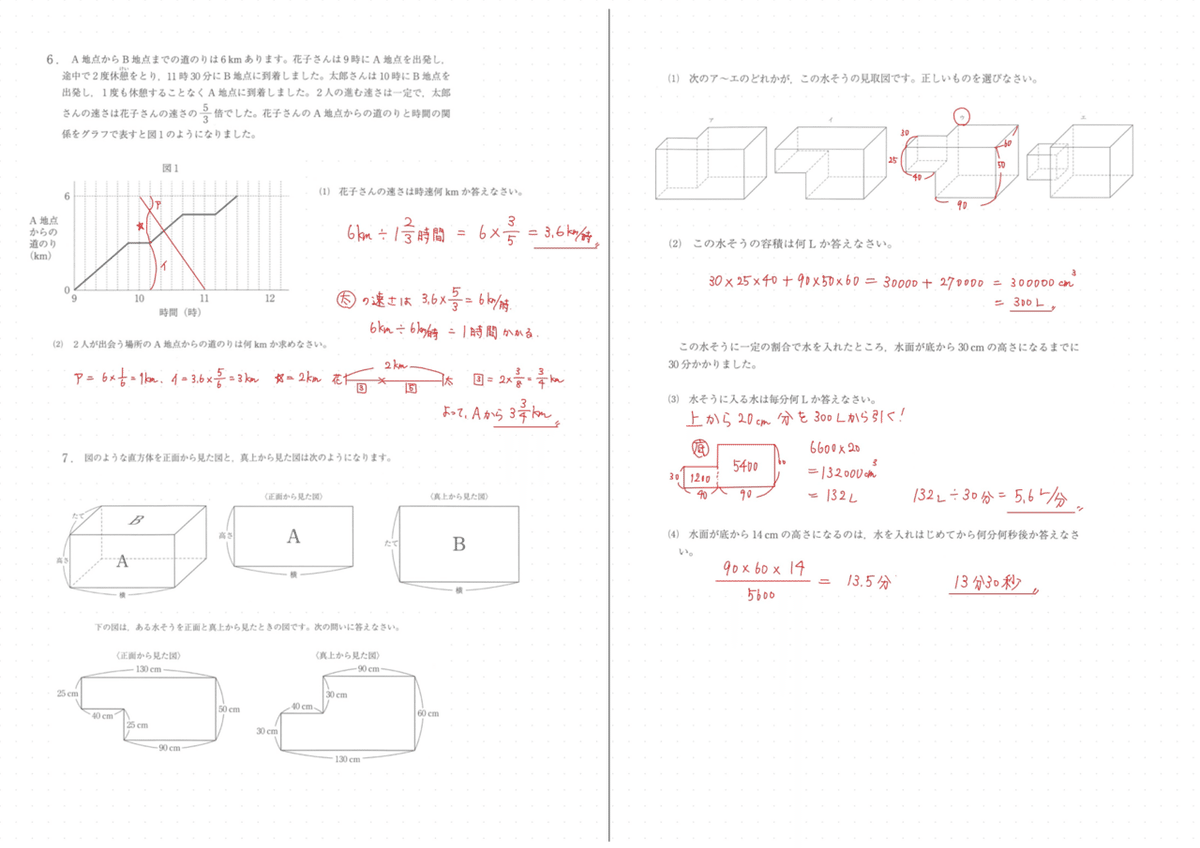 6． A 地点から B 地点までの道のりは 6 km あります。花子さんは 9 時に A 地点を出発し，
途中で 2 度休憩をとり，11 時 30 分に B 地点に到着しました。太郎さんは 10 時に B 地点を
出発し，1 度も休憩することなく A 地点に到着しました。2 人の進む速さは一定で，太郎
さんの速さは花子さんの速さの 5/3 倍でした。花子さんの A 地点からの道のりと時間の関
係をグラフで表すと図 1 のようになりました。
図 1
6
A 地点
からの
道のり
(km)
0
9 10 11 12
時間（時）
ア
★
イ
(1) 花子さんの速さは時速何 km か答えなさい。
6km ÷ 1 2/3 時間 = 6 × 3/5 = 3.6 km/時
太 の速さは 3.6 × 5/3 = 6 km/時
6km ÷ 6km/時 = 1時間かかる.
(2) 2 人が出会う場所の A 地点からの道のりは何 km か求めなさい。
ア = 6 × 1/6 = 1km. イ = 3.6 × 5/6 = 3km ★ = 2km 花 2km 太 3 5 3 = 2 × 3/8 = 3/4 km
よって, Aから 3 3/4 km
7． 図のような直方体を正面から見た図と，真上から見た図は次のようになります。
たて
B
高さ
A
横
〈正面から見た図〉
高さ
A
横
〈真上から見た図〉
たて
B
横
下の図は，ある水そうを正面と真上から見たときの図です。次の問いに答えなさい。
〈正面から見た図〉
130 cm
25 cm
40 cm
25 cm
50 cm
90 cm
〈真上から見た図〉
90 cm
40 cm
30 cm
30 cm
60 cm
130 cm
(1) 次のア〜エのどれかが，この水そうの見取図です。正しいものを選びなさい。
ア イ ウ エ
30
25
40
60
50
90
(2) この水そうの容積は何 L か答えなさい。
30 × 25 × 40 + 90 × 50 × 60 = 30000 + 270000 = 300000 cm³
= 300 L
この水そうに一定の割合で水を入れたところ，水面が底から 30 cm の高さになるまでに
30 分かかりました。
(3) 水そうに入る水は毎分何 L か答えなさい。
上から 20cm 分を 300 L から引く!
底
30
1200
5400
40 90
6600 × 20
= 132000 cm³
= 132 L
132 L ÷ 30 分 = 5.6 L/分
(4) 水面が底から 14 cm の高さになるのは，水を入れはじめてから何分何秒後か答えなさ
い。
90 × 60 × 14 / 5600 = 13.5 分
13 分 30 秒